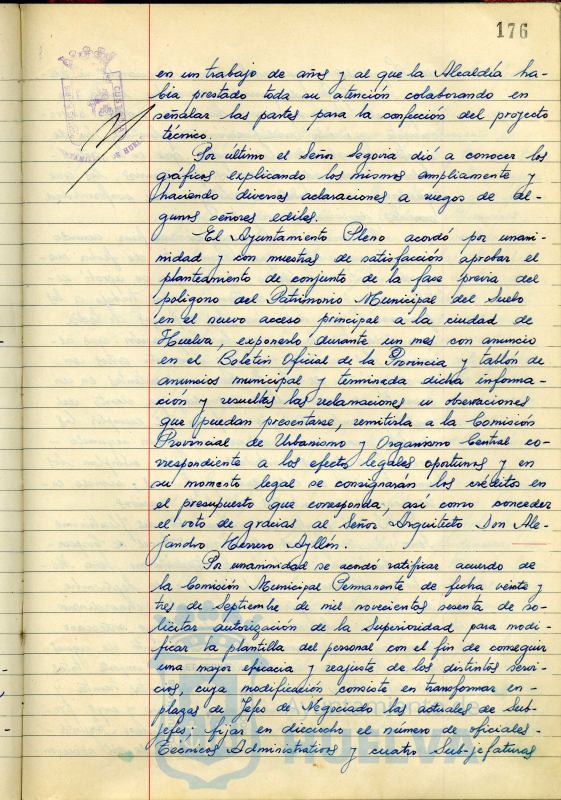 176
en un trabajo de años y al que la Alcaldía ha-
bía prestado toda su atención colaborando en
señalar las partes para la confección del proyecto
técnico.
Por último el Señor Segovia dió a conocer los
gráficos explicando los mismos ampliamente y
haciendo diversas aclaraciones a ruegos de al-
gunos señores ediles.
El Ayuntamiento Pleno acordó por unani-
midad y con muestras de satisfacción aprobar el
planteamiento de conjunto de la fase previa del
polígono del Patrimonio Municipal del Suelo
en el nuevo acceso principal a la ciudad de
Huelva, exponerlo durante un mes con anuncio
en el Boletín Oficial de la Provincia y tablón de
anuncios municipal y terminada dicha informa-
ción y resueltas las reclamaciones u observaciones
que puedan presentarse, remitirla a la Comisión
Provincial de Urbanismo y Organismo Central co-
rrespondiente a los efectos legales oportunos y en
su momento legal se consignarán los créditos en
el presupuesto que corresponda, así como conceder
el voto de gracias al Señor Arquitecto Don Ale-
jandro Herrero Ayllón.
Por unanimidad se acordó ratificar acuerdo de
la Comisión Municipal Permanente de fecha veinte y
tres de Septiembre de mil novecientos sesenta de so-
licitar autorización de la Superioridad para modi-
ficar la plantilla del personal con el fin de conseguir
una mayor eficacia y reajuste de los distintos servi-
cios, cuya modificación consiste en transformar en-
plazas de Jefes de Negociado las actuales de Sub-
jefes; fijar en dieciocho el número de oficiales-
Técnicos Administrativos y cuatro Sub-jefaturas
HUELVA